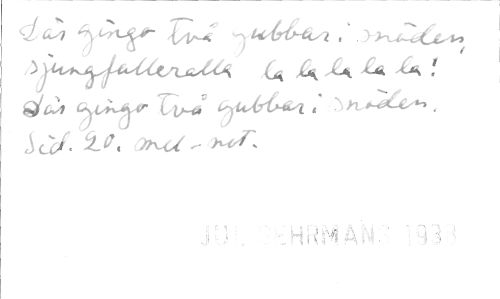 Där gingo två gubbar i snöden,
sjungfalleralla la la la la la!
Där gingo två gubbar i snöden.
Sid. 20. mel-not.
1933